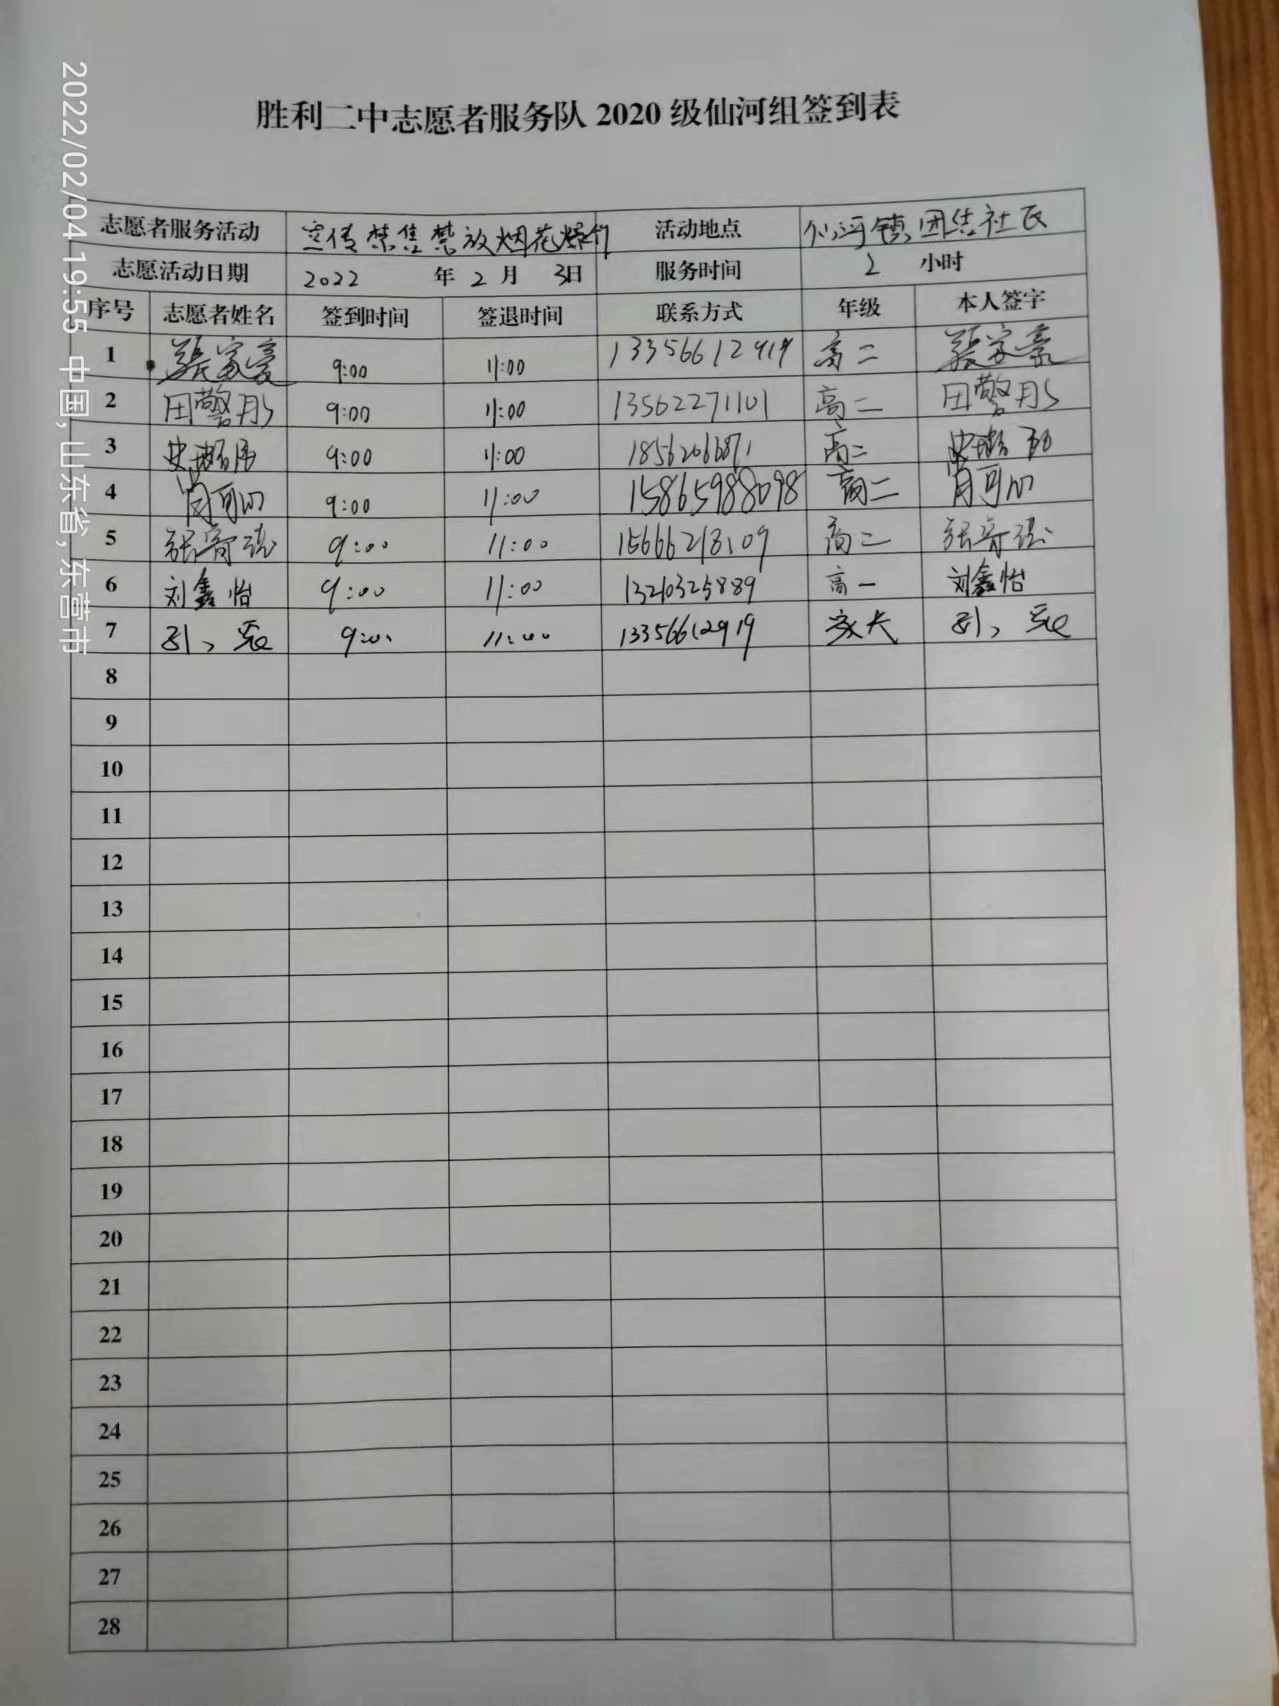 2022/02/04 19:55 中国,山东省,东营市
胜利二中志愿者服务队 2020 级仙河组签到表
志愿者服务活动 宣传禁售禁放烟花爆竹 活动地点 仙河镇团结社区
志愿活动日期 2022 年 2 月 3日 服务时间 2 小时
序号 志愿者姓名 签到时间 签退时间 联系方式 年级 本人签字
1 张家豪 9:00 11:00 13356612919 高二 张家豪
2 田警彤 9:00 11:00 13562271101 高二 田警彤
3 9:00 11:00 高二
4 肖可心 9:00 11:00 15865988098 高二 肖可心
5 9:00 11:00 15666218109 高二
6 刘鑫怡 9:00 11:00 13210325889 高一 刘鑫怡
7 9:00 11:00 13356612919 家长
8
9
10
11
12
13
14
15
16
17
18
19
20
21
22
23
24
25
26
27
28